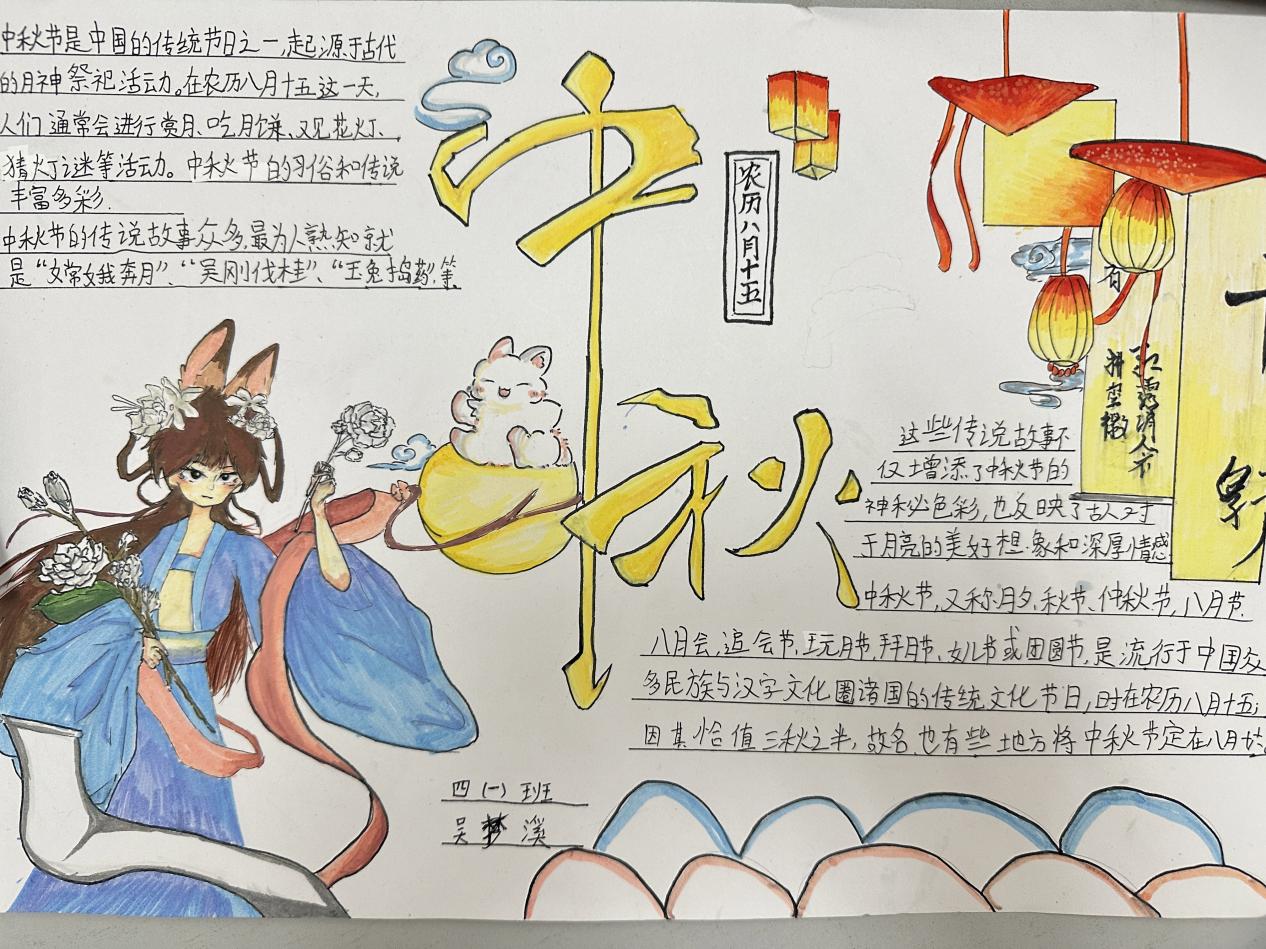 中秋节是中国的传统节日之一,起源于古代
的月神祭祀活动。在农历八月十五这一天,
人们通常会进行赏月、吃月饼、观花灯、
猜灯谜等活动。中秋节的习俗和传说
丰富多彩.
中秋节的传说故事众多,最为人熟知就
是“嫦娥奔月”、“吴刚伐桂”、“玉兔捣药”等
中秋
农历八月十五
这些传说故事不
仅增添了中秋节的
神秘色彩,也反映了古人对
于月亮的美好想象和深厚情感
中秋节,又称月夕、秋节、仲秋节,八月节.
八月会,追会节,玩月节,拜月节、女儿节或团圆节,是流行于中国众
多民族与汉字文化圈诸国的传统文化节日,时在农历八月十五;
因其恰值三秋之半,故名也有些地方将中秋节定在八月
四(一)班
吴梦溪